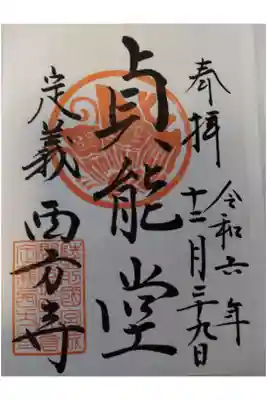 奉拝
令和六年
十二月二十九日
貞能堂
定義
西方寺